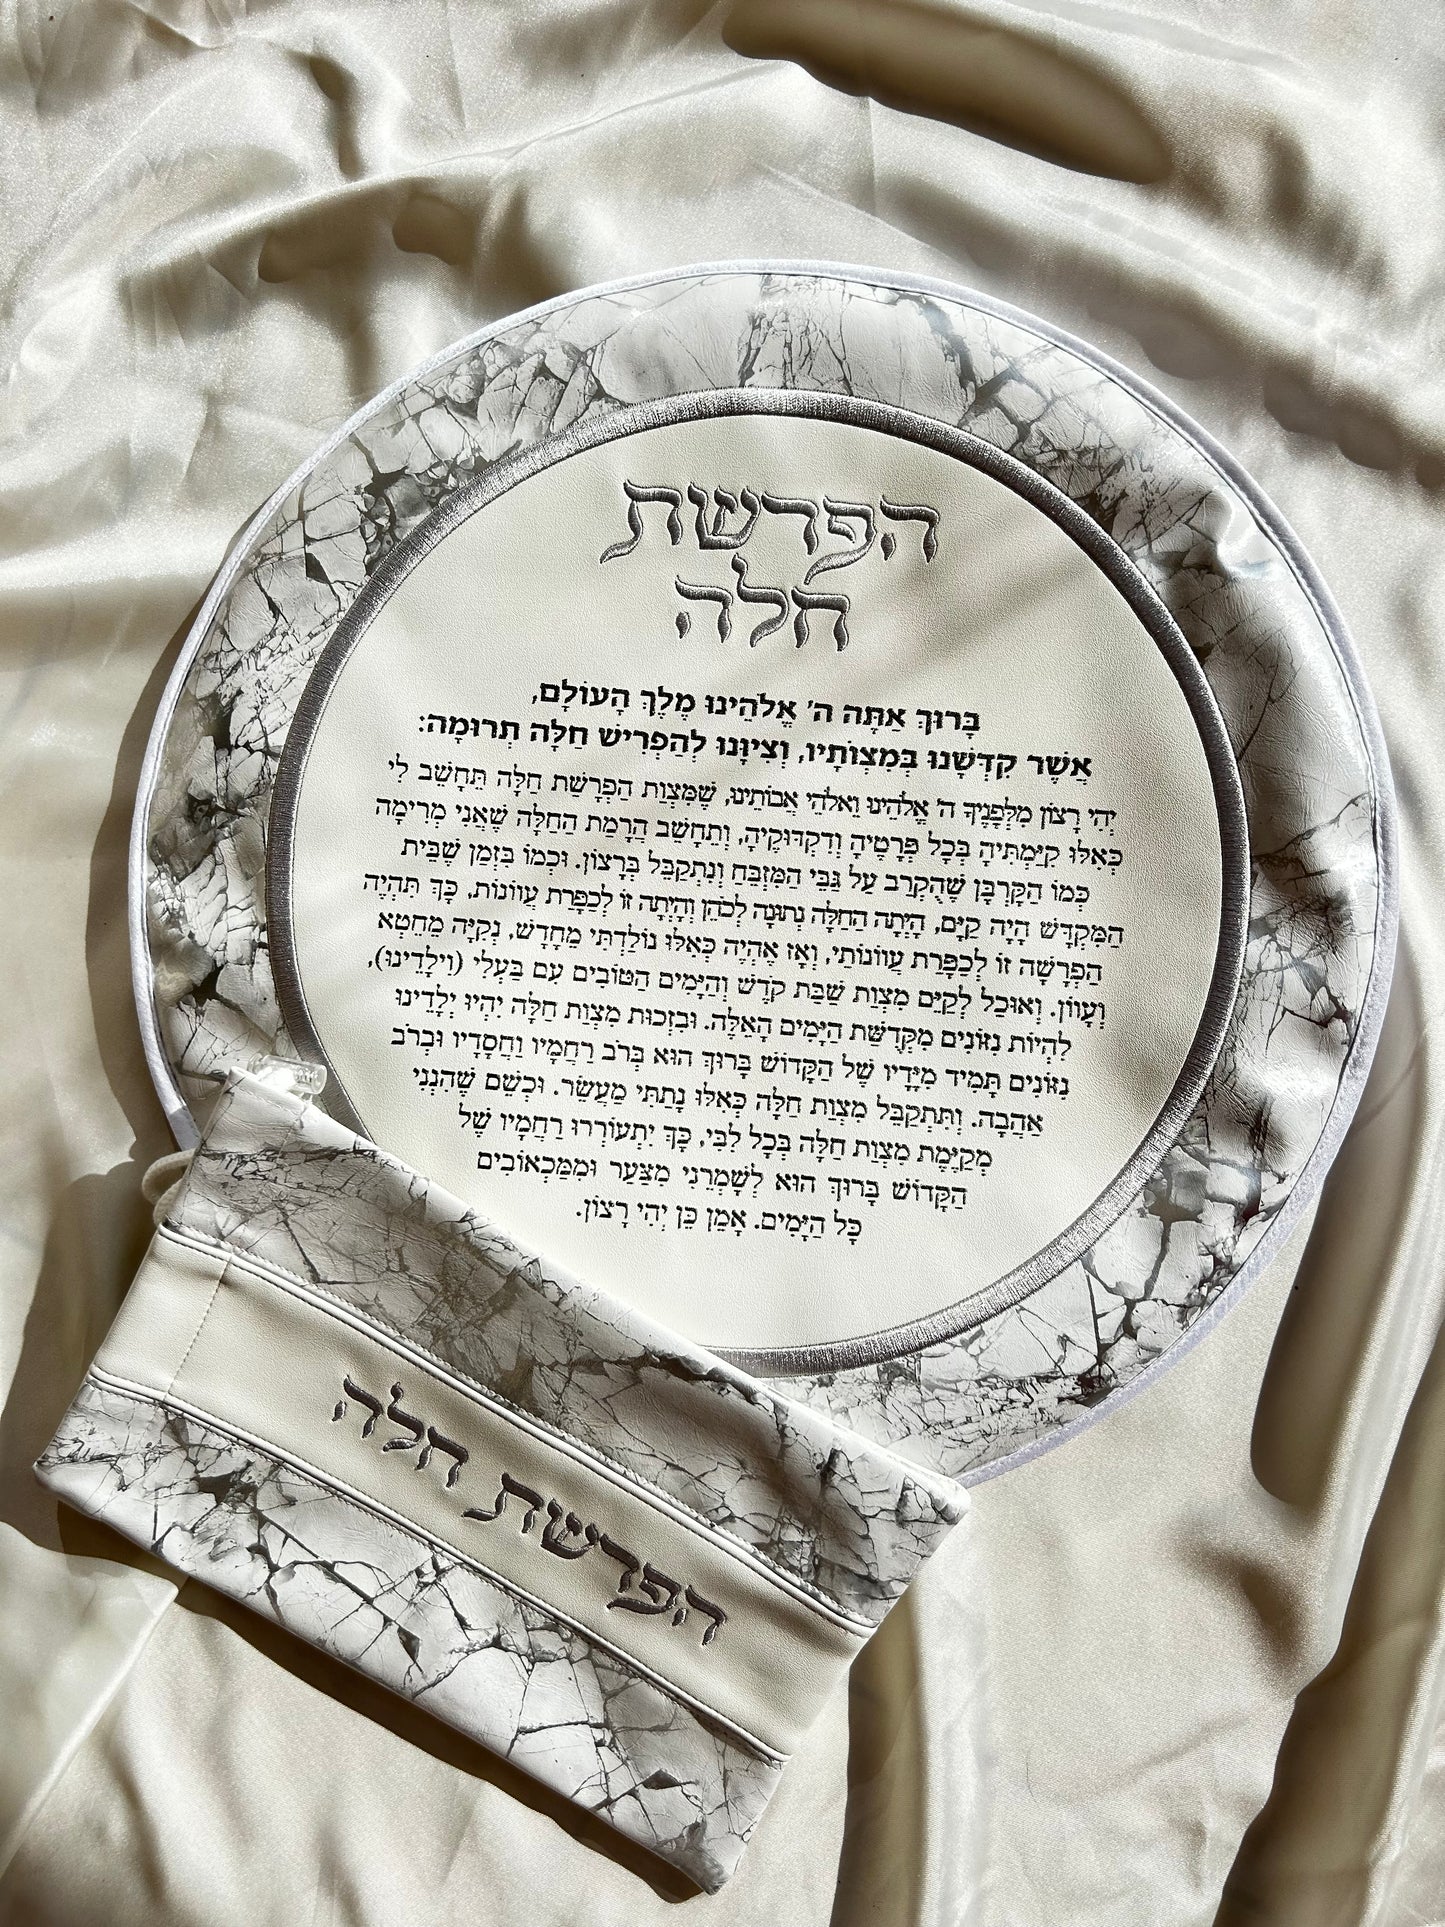 הפרשת
חלה
בָּרוּךְ אַתָּה ה' אֱלֹהֵינוּ מֶלֶךְ הָעוֹלָם,
אֲשֶׁר קִדְּשָׁנוּ בְּמִצְוֹתָיו, וְצִיוָּנוּ לְהַפְרִישׁ חַלָּה תְּרוּמָה:
יְהִי רָצוֹן מִלְּפָנֶיךָ ה' אֱלֹהֵינוּ וֵאלֹהֵי אֲבוֹתֵינוּ, שֶׁמִּצְוַת הַפְרָשַׁת חַלָּה תֵּחָשֵׁב לִי
כְּאִלּוּ קִיַּמְתִּיהָ בְּכָל פְּרָטֶיהָ וְדִקְדּוּקֶיהָ, וְתֵחָשֵׁב הֲרָמַת הַחַלָּה שֶׁאֲנִי מְרִימָה
כְּמוֹ הַקָּרְבָּן שֶׁהֻקְרַב עַל גַּבֵּי הַמִּזְבֵּחַ וְנִתְקַבֵּל בְּרָצוֹן. וּכְמוֹ בִּזְמַן שֶׁבֵּית
הַמִּקְדָּשׁ הָיָה קַיָּם, הָיְתָה הַחַלָּה נְתוּנָה לְכֹהֵן וְהָיְתָה זוֹ לְכַפָּרַת עֲווֹנוֹת, כָּךְ תִּהְיֶה
הַפְרָשָׁה זוֹ לְכַפָּרַת עֲווֹנוֹתַי, וְאָז אֶהְיֶה כְּאִלּוּ נוֹלַדְתִּי מֵחָדָשׁ, נְקִיָּה מֵחֵטְא
וְעָווֹן. וְאוּכַל לְקַיֵּם מִצְוַת שַׁבַּת קֹדֶשׁ וְהַיָּמִים הַטּוֹבִים עִם בַּעְלִי (וִילָדֵינוּ),
לִהְיוֹת נִזּוֹנִים מִקְּדֻשַּׁת הַיָּמִים הָאֵלֶּה. וּבִזְכוּת מִצְוַת חַלָּה יִהְיוּ יְלָדֵינוּ
נִזּוֹנִים תָּמִיד מִיָּדָיו שֶׁל הַקָּדוֹשׁ בָּרוּךְ הוּא בְּרֹב רַחֲמָיו וַחֲסָדָיו וּבְרֹב
אַהֲבָה. וְתִתְקַבֵּל מִצְוַת חַלָּה כְּאִלּוּ נָתַתִּי מַעֲשֵׂר. וּכְשֵׁם שֶׁהִנְנִי
מְקַיֶּמֶת מִצְוַת חַלָּה בְּכָל לִבִּי, כָּךְ יִתְעוֹרְרוּ רַחֲמָיו שֶׁל
הַקָּדוֹשׁ בָּרוּךְ הוּא לְשָׁמְרֵנִי מִצַּעַר וּמִמַּכְאוֹבִים
כָּל הַיָּמִים. אָמֵן כֵּן יְהִי רָצוֹן.
הפרשת חלה